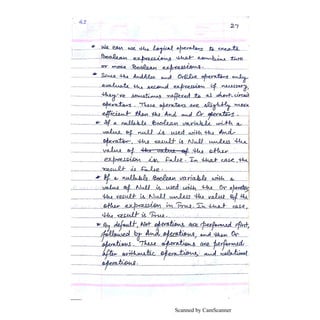 27
* We can use the logical operators to create
Boolean expressions that combine two
or more Boolean expressions.
* Since the AndAlso and OrElse operators only
evaluate the second expression if necessary,
they're sometimes reffered to as short-circuit
operators. These operators are slightly more
efficient than the And and Or operators.
* If a nullable Boolean variable with a
value of null is used with the And
operator, the result is Null unless the
value of the value of the other
expression is False. In that case, the
result is False.
* If a nullable Boolean variable with a
value of Null is used with the Or operator,
the result is Null unless the value of the
other expression is True. In that case,
the result is True.
* By default, Not operations are performed first,
followed by And operations, and then Or
operations. These operations are performed
after arithmetic operations and relational
operations.
Scanned by CamScanner